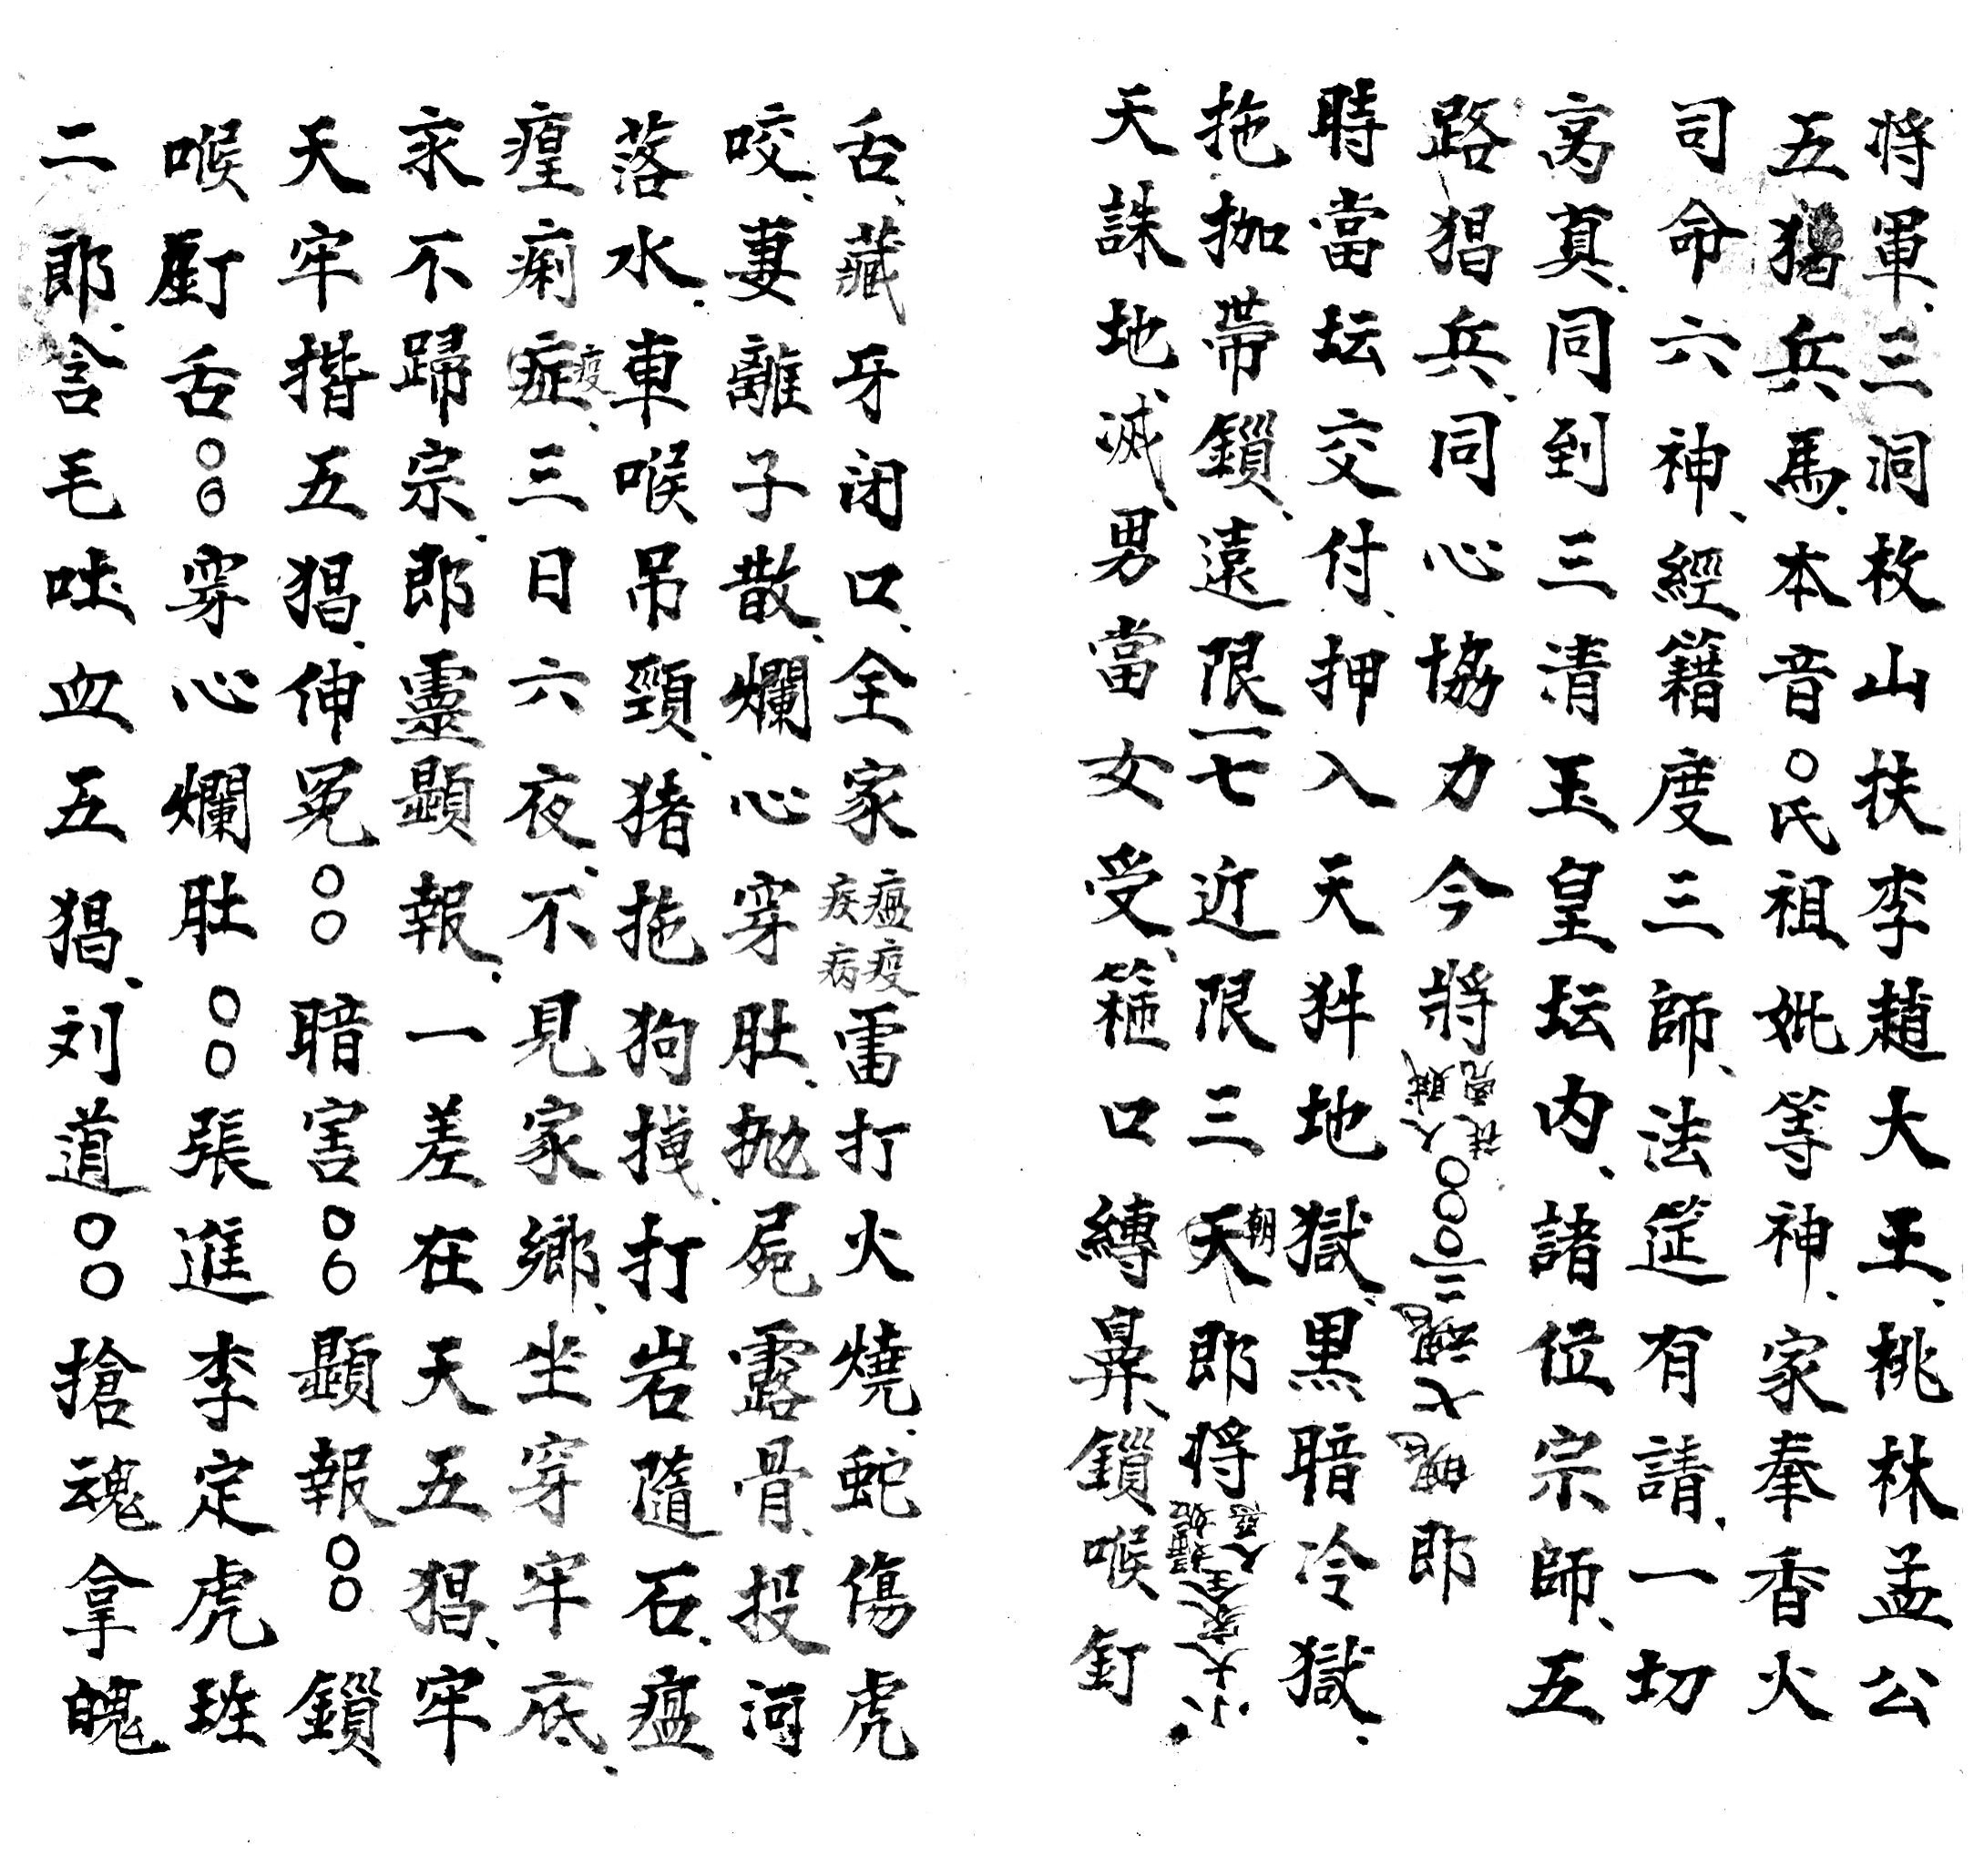 将軍、三洞枚山扶李趙大王、桃林孟公
五猖兵馬、本音〇氏祖妣等神、家奉香火
司命六神、經籍度三師、法筵有請、一切
窩真、同到三清玉皇坛内、諸位宗師、五
路猖兵、同心協力今將〇〇〇三魂七魄即
時當坛交付、押入天牢地獄、黒暗冷獄、
拖枷帶鎖、遠限一七近限三天朝郎将人家大小
天誅地滅、男當女受、箍口縛鼻、鎖喉釘
舌、藏牙闭口、全家瘟疫疾病雷打火燒、蛇傷虎
咬、妻離子散、爛心穿肚、抛屍露骨、投河
落水、車喉吊頸、猪拖狗摸、打岩隨石、瘟
瘟痢症疫、三日六夜、不見家鄉、坐穿牢底、
家不歸宗、郎靈顯報、一差在天五猖、牢
天牢揩五猖、伸冤〇〇暗害〇〇顯報〇〇鎖
喉釘舌〇〇穿心爛肚〇〇張進李定虎班
二郎、含毛吐血五猖、刘道〇〇搶魂拿魄